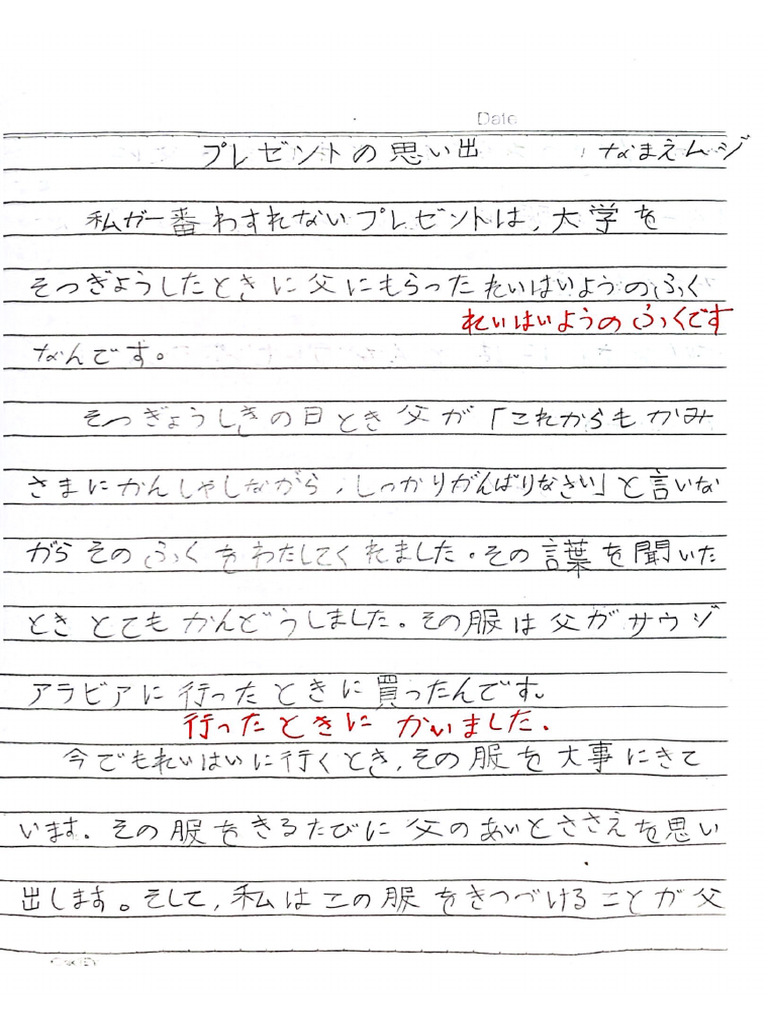 Date
プレゼントの思い出 なまえんジ
私が一番わすれないプレゼントは、大学を
そつぎょうしたときに父にもらったれいはいようのふく
れいはいようのふくです
なんです。
そつぎょうしきの日とき父が「これからもかみ
さまにかんしゃしながら、しっかりがんばりなさい」と言いな
がらそのふくをわたしてくれました。その言葉を聞いた
とき とてもかんどうしました。その服は父がサウジ
アラビアに行ったときに買ったんです。
行ったときに かいました。
今でもれいはいに行くとき、その服を大事にきて
います。その服をきるたびに父のあいとささえを思い
出します。そして、私はこの服をきつづけることが父